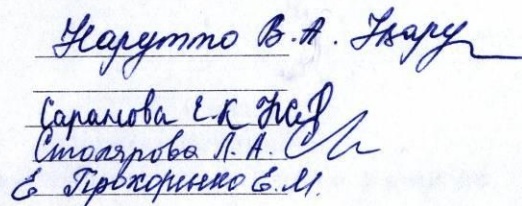 Нарутто В.А.
Сарамова Е.К
Столярова Л.А.
Е Прохоренко Е.М.